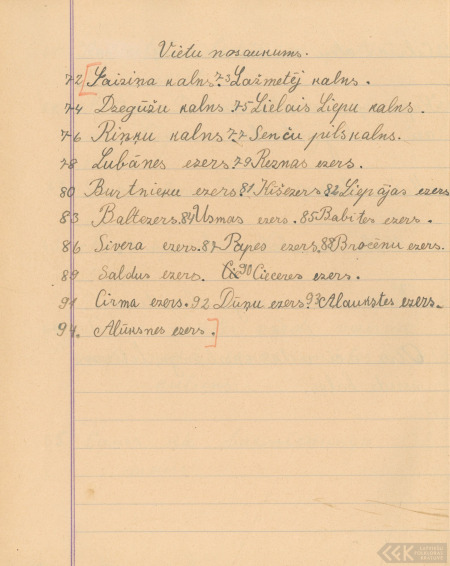 Vietu nosaukums.
72 [Gaiziņa kalns. 73 Lažmetēj kalns.
74 Dzegūžu kalns. 75 Lielais Liepu kalns.
76 Riņņu kalns. 77 Senču pils kalns.
78 Lubānes ezers. 79 Reznas ezers.
80 Burtnieku ezers. 81 Ķišezers. 82 Liepājas ezers
83 Baltezers. 84 Usmas ezers. 85 Babites ezers.
86 Sivera ezers. 87 Papes ezers. 88 Brocēnu ezers.
89 Saldus ezers. 90 Cieceres ezers.
91 Cirma ezers. 92 Dūņu ezers. 93 Alaukstes ezers.
94. Alūksnes ezers.]
LATVIEŠU FOLKLORAS KRĀTUVE